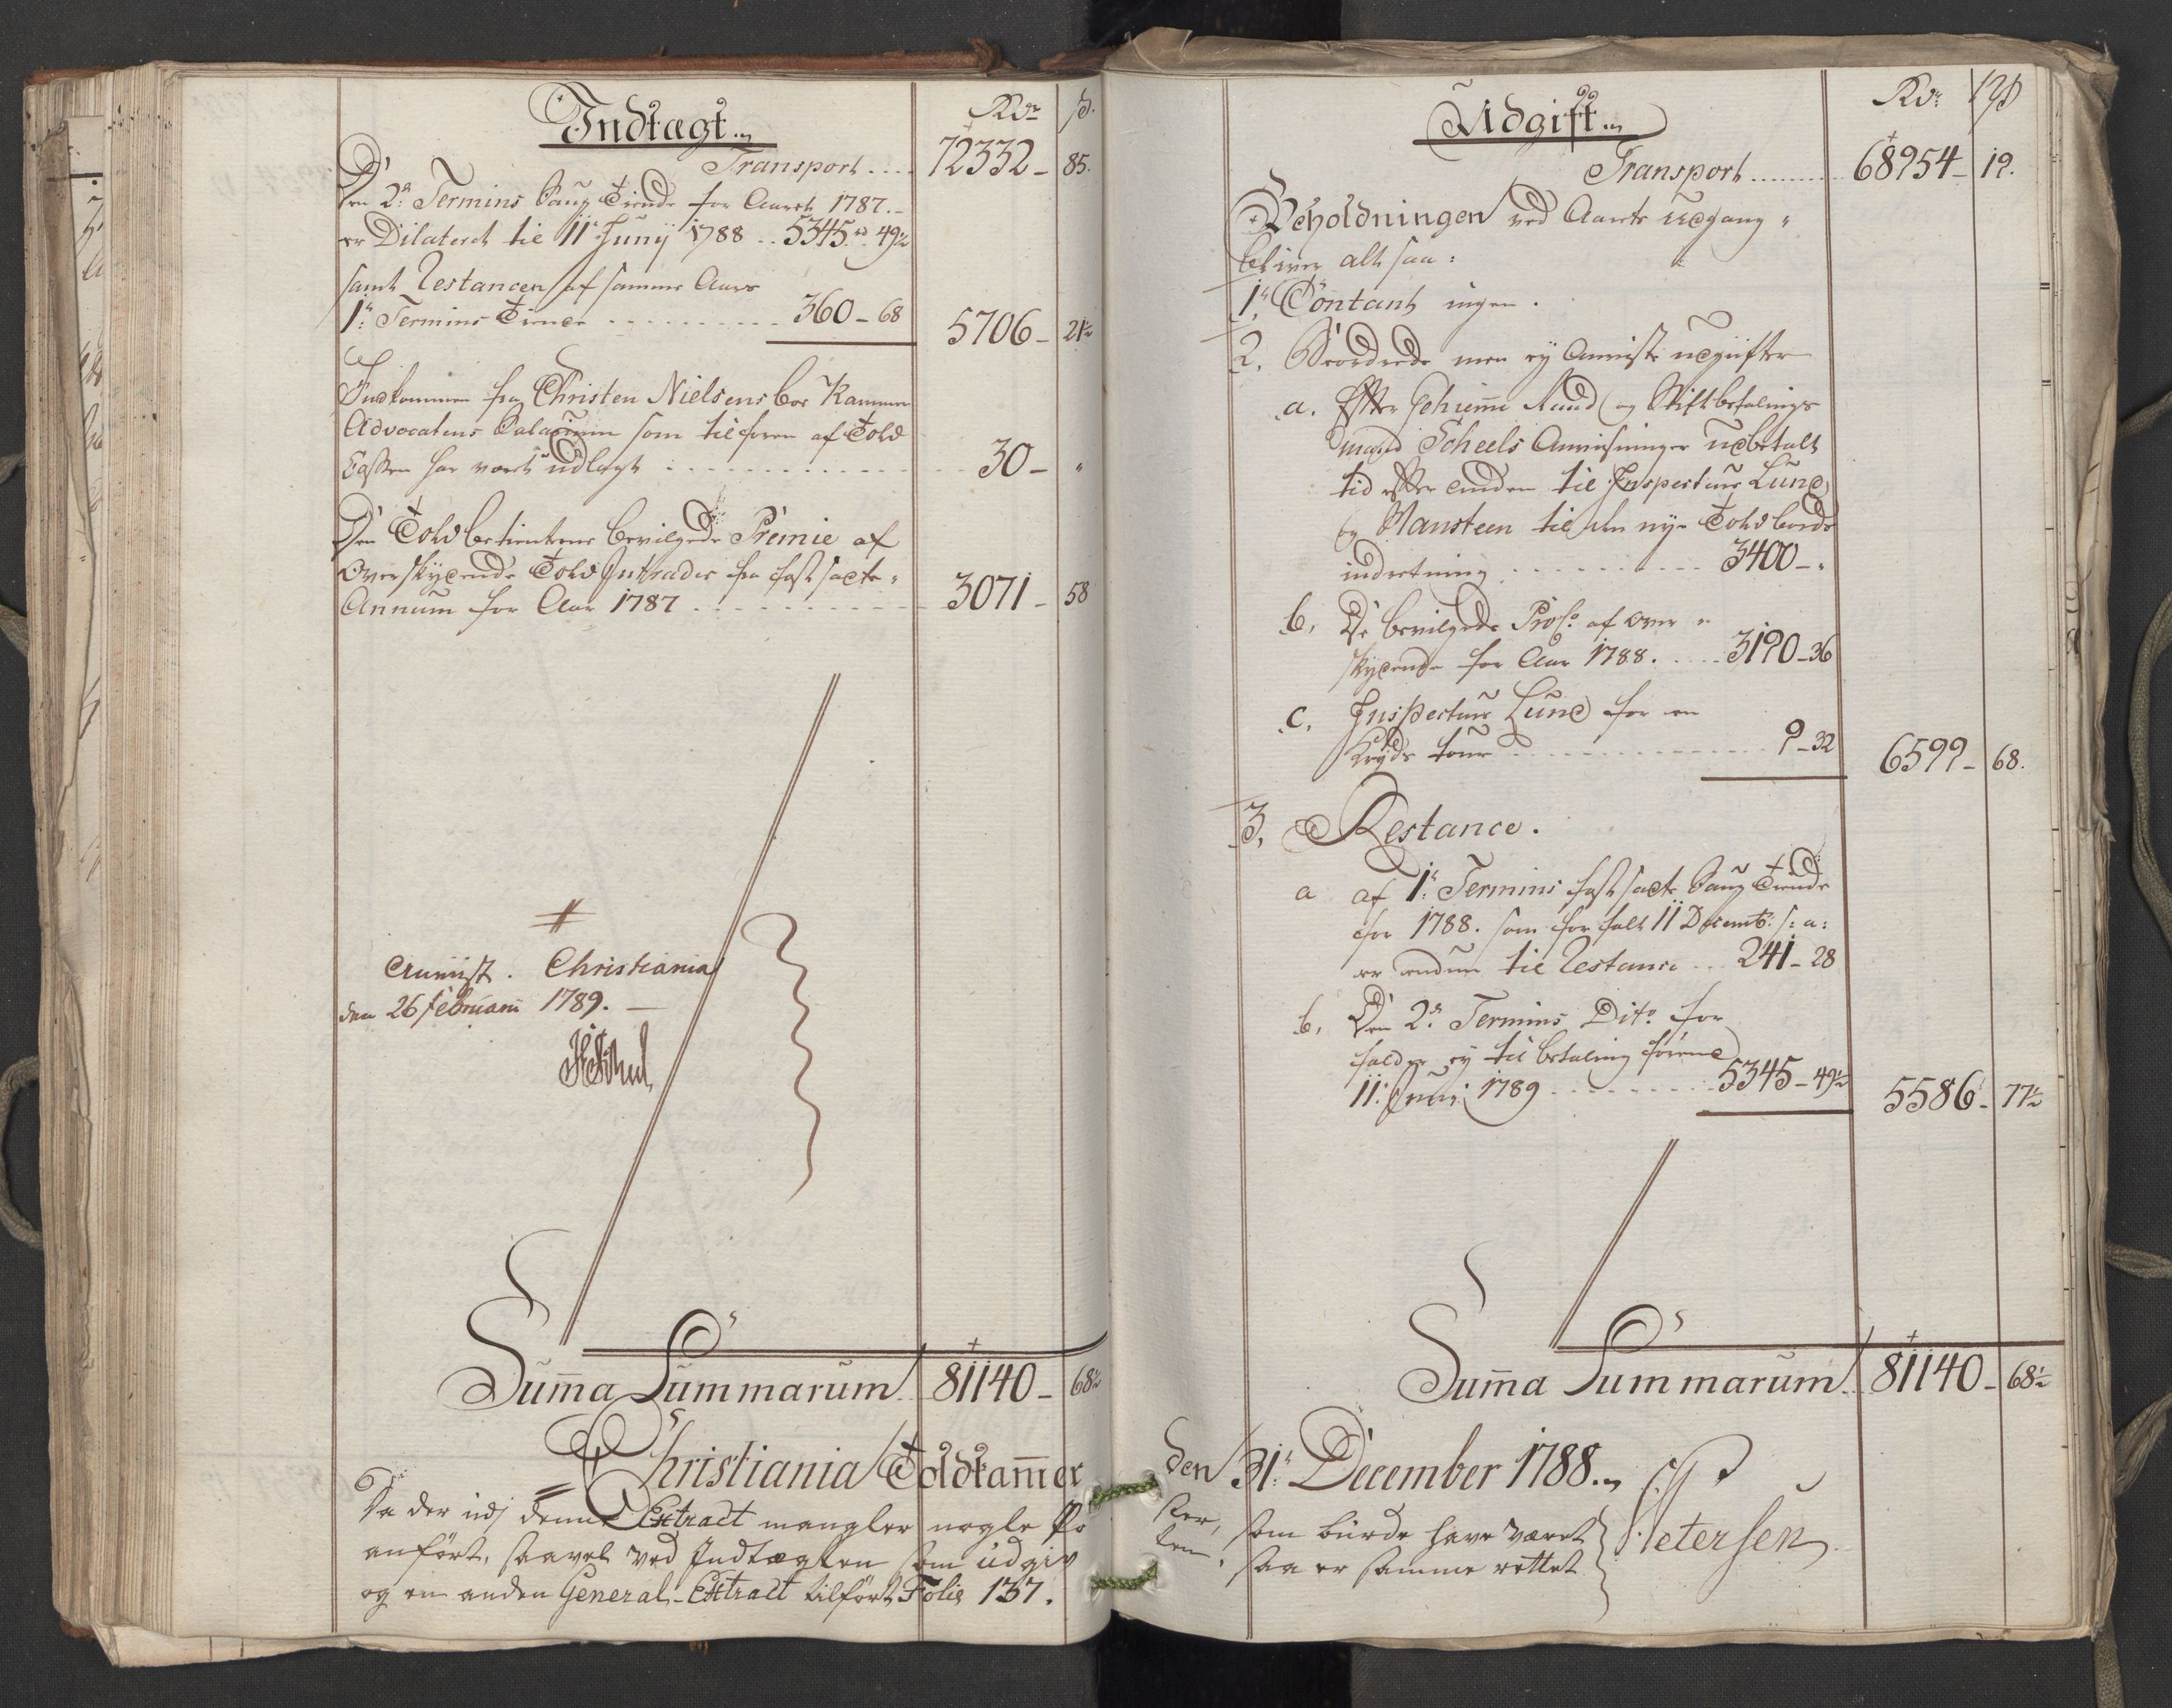 Indtægt
Rdr ß.
Transport .... 72332 - 85.
Den 2de Termins Saug Tiende for Aaret 1787.
er Dilateret til 11te Junij 1788 .. 5345 rd 49½
samt Restancen af samme Aars
1te Termins Tiende ---------- 360 - 68 5706 - 21½
Indkommen fra Christen Nielsens boe Kammer
Advocatens Salarium som tilforen af Told
Cassen har været udlagt ------------- 30 - "
Den Told betienterne bevilgede Præmie af
Overskydende Told Intrader fra fastsadte
Annum for Aar 1787 ----------- 3071 - 58
Christiania
den 26 Februarii 1789. —
Summa Summarum .. 81140 - 68½
Christiania Toldkammer
Da der udj denne Extract mangler nogle Po
anført, saavel ved Indtægten som udgiv
og en anden General-Extract tilført Folio 137.
Udgift
Rdr ß
Transport ......... 68954 - 19.
Beholdningen ved Aarets Udgang
bliver alt saa:
1te Contant ingen.
2. Beordrede men ey Anviiste udgifter
a. Efter Geheime Raad og Stiftbefalings
mand Scheels Anviisninger udbetalt
tid efter anden til Inspecteur Lund
og Hansteen til den nye Toldbords
indretning .......... 3400 - "
b, De bevilgede Proc. af over
skydende for Aar 1788. .... 3190 - 36
c. Inspecteur Lund for en
Kryds tour ------------- 9 - 32 6599 - 68.
3, Restance.
a af 1te Termins fastsadte Saug Tiende
for 1788. som forfalt 11 Decemb: s: a:
er endnu til Restance .. 241 - 28
b, Den 2de Termins Dito for
falder ey til betaling førend
11te Junii 1789 --------- 5345 - 49½ 5586 - 77½
Summa Summarum .. 81140 - 68½
den 31te December 1788.
ster, som burde have været
ten, saa er samme rettet
Petersen